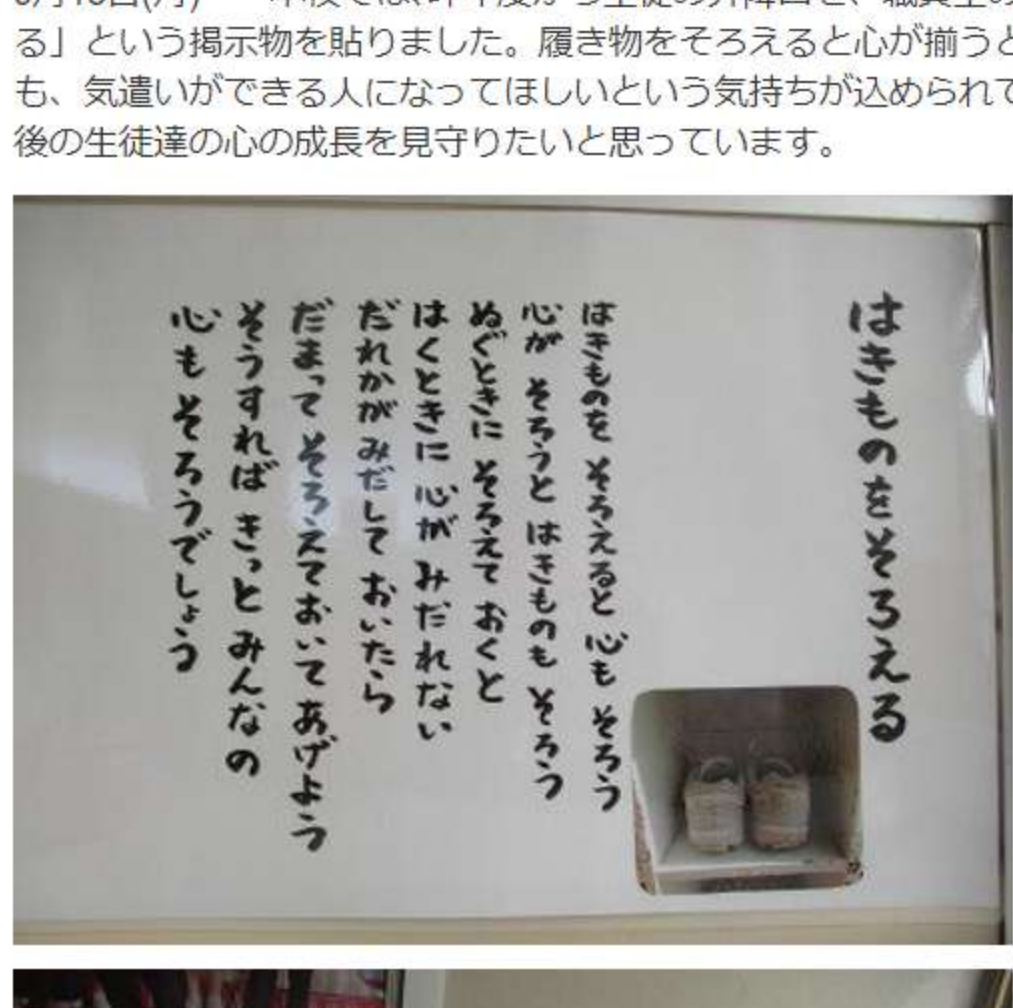 る」という掲示物を貼りました。履き物をそろえると心が揃うと
も、気遣いができる人になってほしいという気持ちが込められて
後の生徒達の心の成長を見守りたいと思っています。
はきものをそろえる
はきものを そろえると 心も そろう
心が そろうと はきものも そろう
ぬぐときに そろえて おくと
はくときに 心が みだれない
だれかが みだして おいたら
だまって そろえておいて あげよう
そうすれば きっと みんなの
心も そろうでしょう